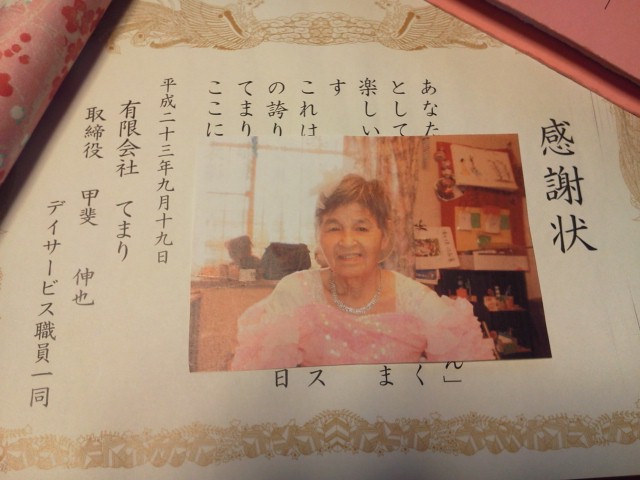 感謝状
あなた ん」
として く
楽しい ま
す
これは ス
の誇り 日
てまり
ここに
平成二十三年九月十九日
有限会社 てまり
取締役 甲斐 伸也
デイサービス職員一同